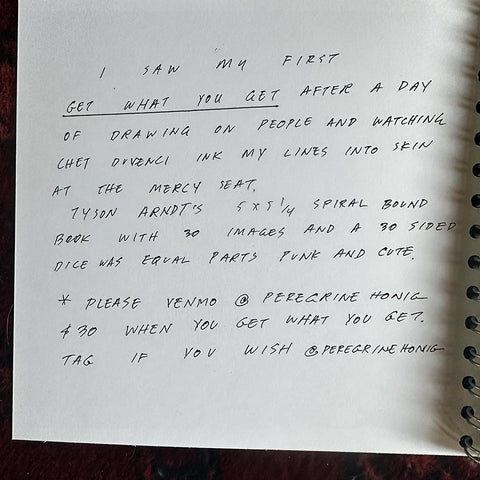 I SAW MY FIRST
GET WHAT YOU GET AFTER A DAY
OF DRAWING ON PEOPLE AND WATCHING
CHET DUVENCI INK MY LINES INTO SKIN
AT THE MERCY SEAT.
TYSON ARNDT'S 5 X 5 1/4 SPIRAL BOUND
BOOK WITH 30 IMAGES AND A 30 SIDED
DICE WAS EQUAL PARTS PUNK AND CUTE.
* PLEASE VENMO @ PEREGRINE HONIG
$30 WHEN YOU GET WHAT YOU GET.
TAG IF YOU WISH @PEREGRINEHONIG